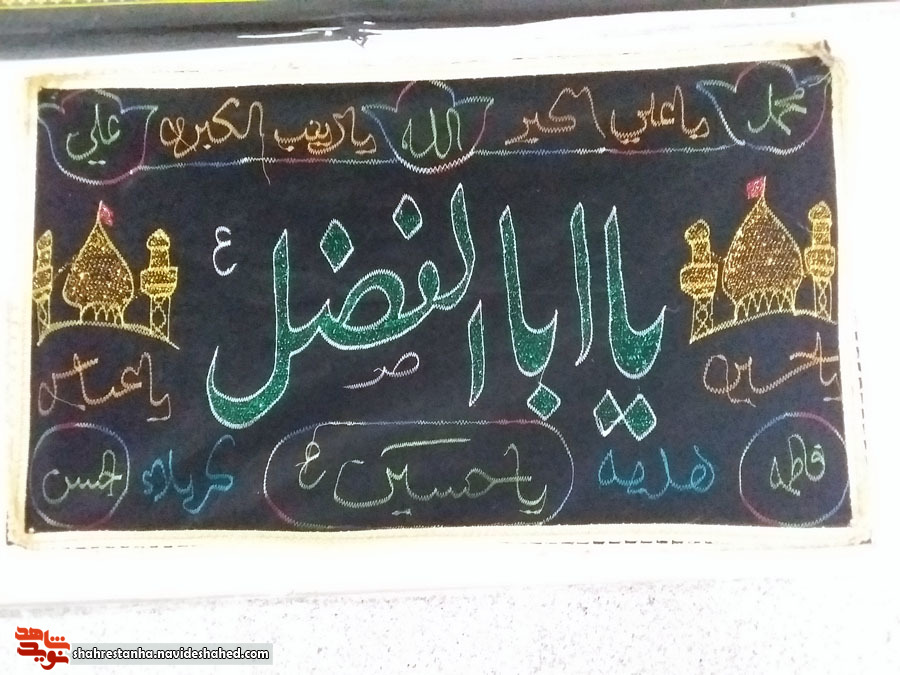 محمد یا علی اکبر الله یا زینب الکبره علی
یا ابا الفضل ع
یا حسین یا عباس
فاطمه هدیه یا حسین ع کربلاء حسن
شاهد نوید shahrestanha.navideshahed.com